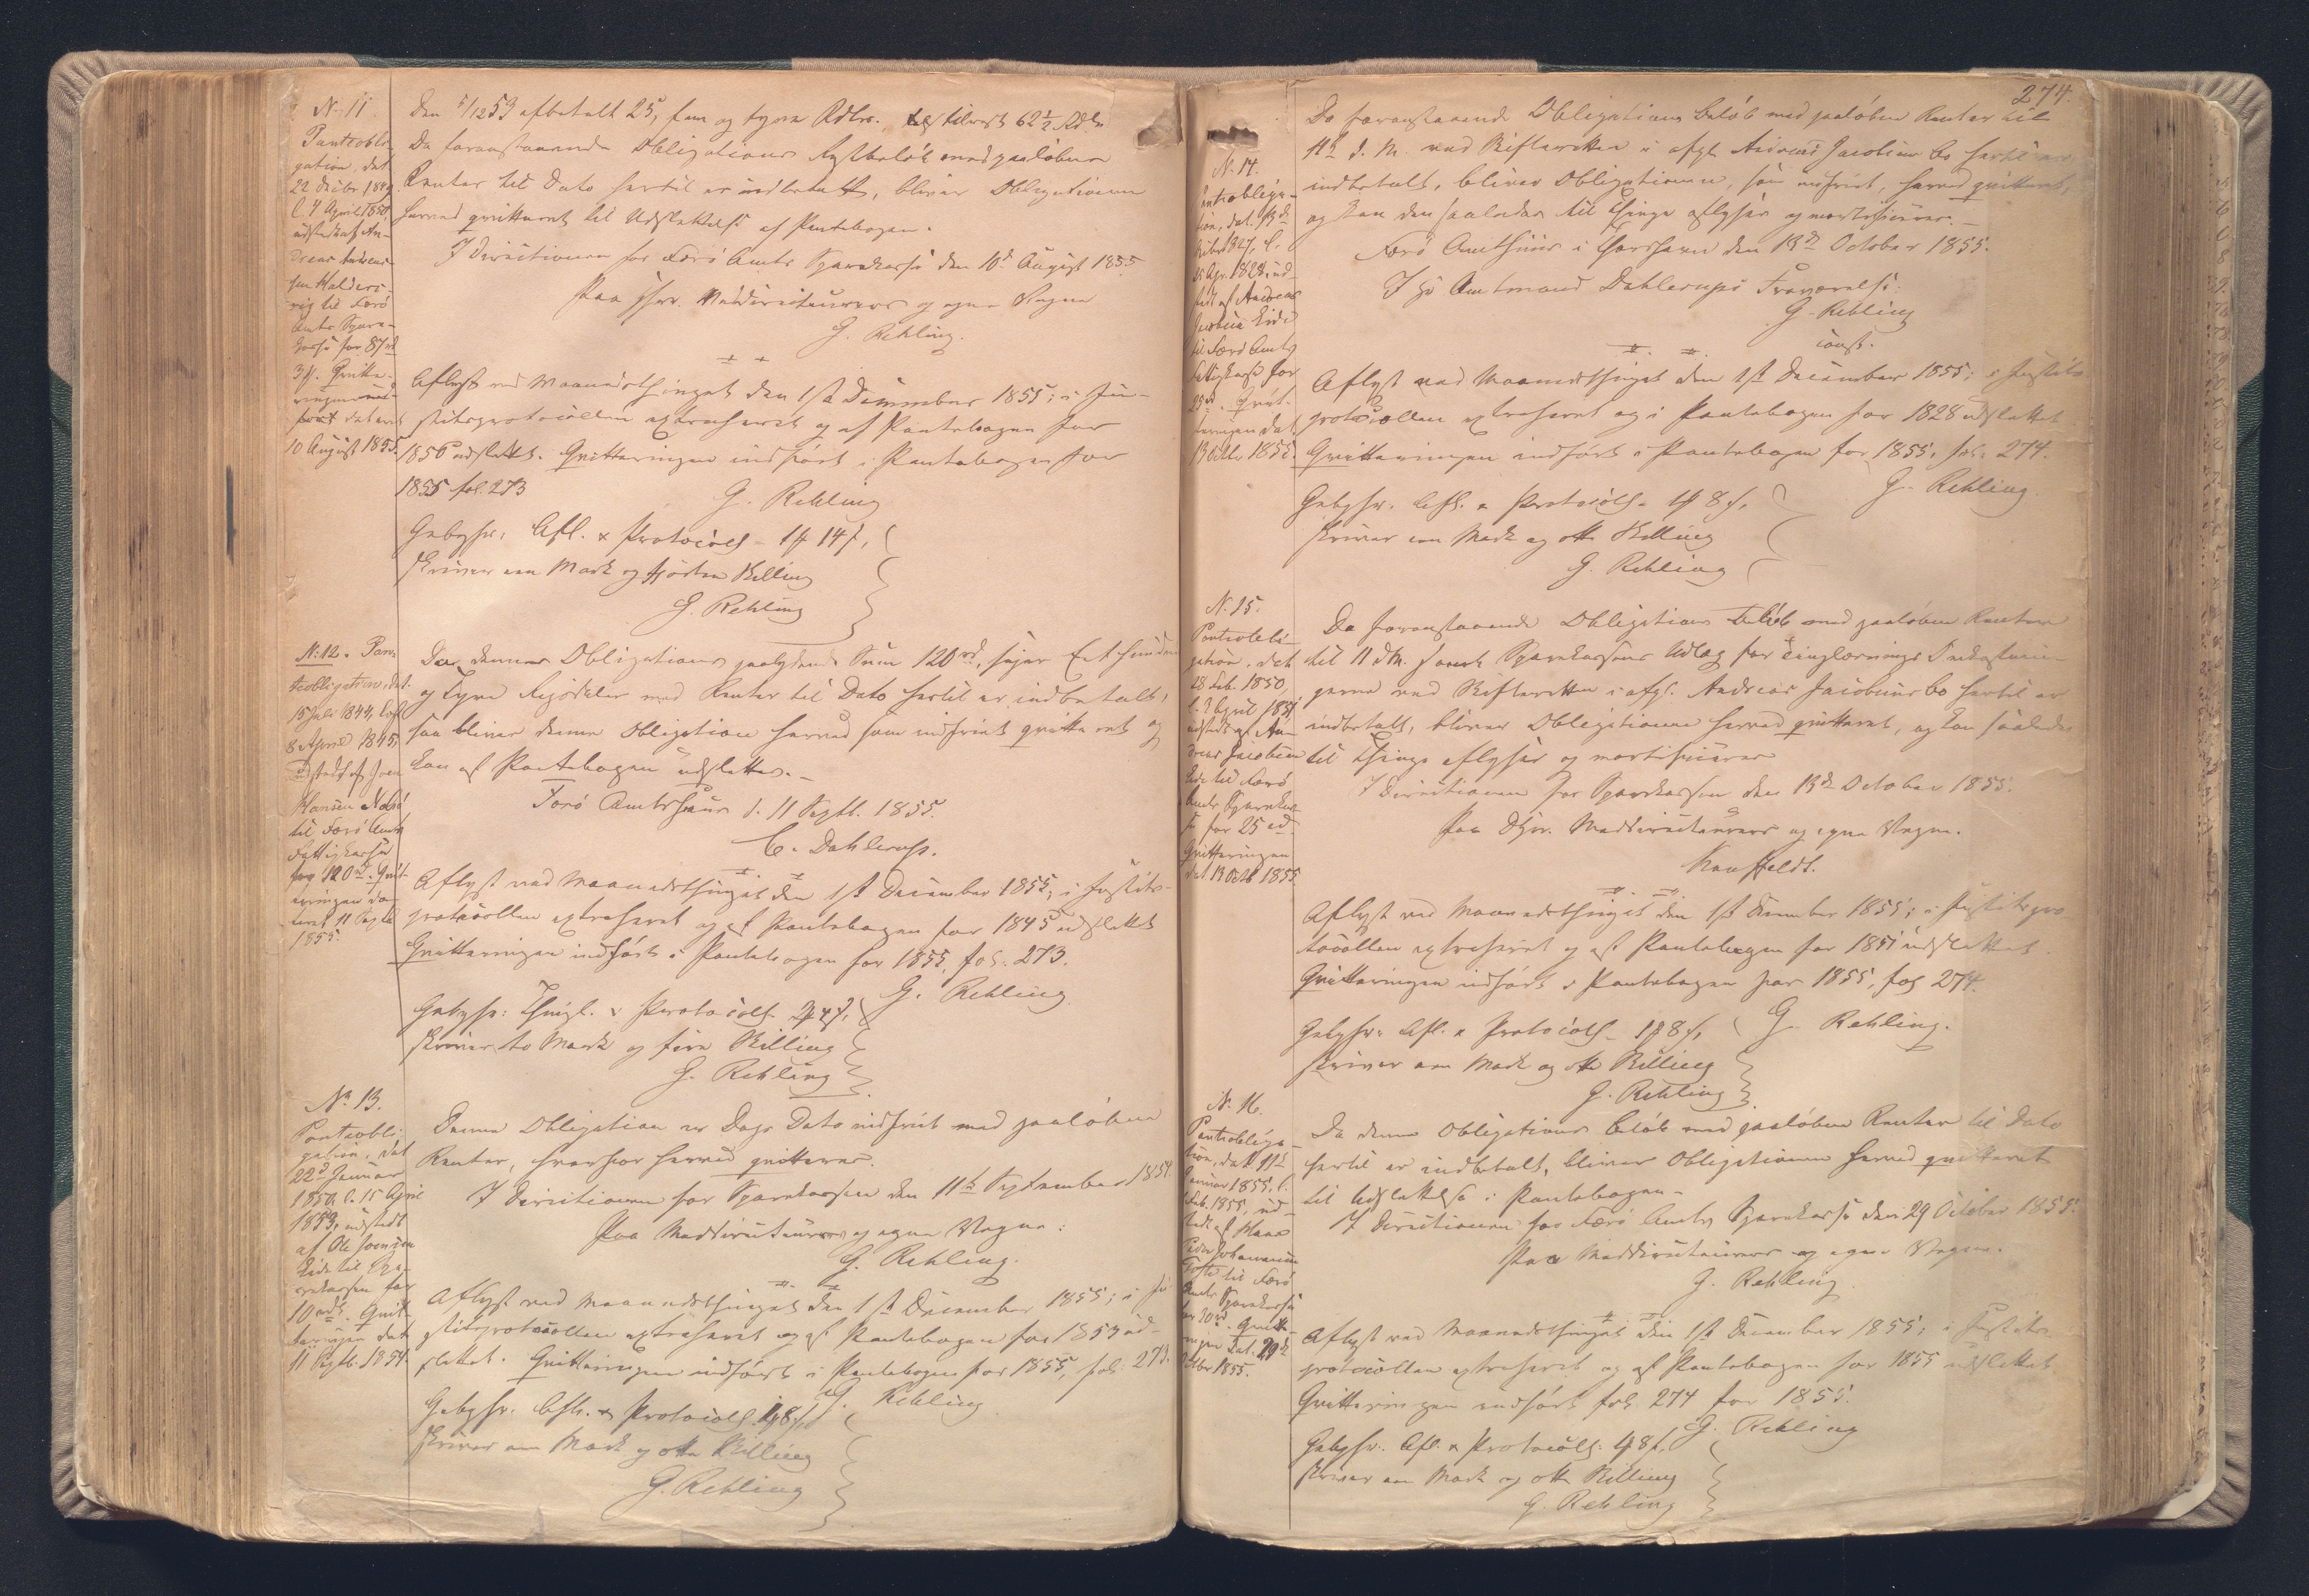 N. 11.
Pantobli-
gation, dat.
22 Decbr. 1849,
l. 4 April 1850,
udstedt af An-
dreas Andreas-
sen Halders-
vig til Færø
Amts Spare-
kasse for 87 rd
3 ƒ. Qvitte-
ringen
dateret
10 August 1855.
Den 5/12 53 afbetalt 25, fem og tyve Rdlr. Rest tilovers 62½ Rdlr
Da foranstaaende Obligations Restbeløb med paaløbne
Renter til Dato hertil er indbetalt, bliver Obligationen
herved qvitteret til Udslettelse af Pantebogen.
I Directionen for Færø Amts Sparekasse den 10de August 1855
Paa Meddirecteurers og egne Vegne
G. Rehling.
Aflyst ved Maanedsthinget den 1ste December 1855; i Ju-
stitsprotocollen extraheret og af Pantebogen for
1850 udslettet. Qvitteringen indført i Pantebogen for
1855 fol. 273
G. Rehling
Gebyhr: Afl. & Protocoll. 1 ƒ 14 ƒ,
skriver een Mark og fjorten Skilling
G. Rehling
N. 12. Pan-
teobligation, dat.
15 Juli 1844, læst
8 April 1845,
udstedt af Joen
Hansen
til Færø Amts
Fattigkasse
for 120 rd. Qvit-
teringen da-
teret 11 Septbr
1855.
Da denne Obligations paalydende Sum 120 rd, siger Et Hundrede
og Tyve Rigsdaler med Renter til Dato hertil er indbetalt,
saa bliver denne Obligation herved som indfriet qvitteret og
kan af Pantebogen udslettes.
Færø Amtshuus d. 11 Septb. 1855.
C. Dahlerup.
Aflyst ved Maanedsthinget den 1ste December 1855; i Justits-
protocollen extraheret og af Pantebogen for 1845 udslettet
Qvitteringen indført i Pantebogen for 1855, fol. 273.
G. Rehling
Gebyhr: Thingl. & Protocoll. 2 ƒ 4 ƒ,
skriver to Mark og fire Skilling
G. Rehling
No 13.
Pantobli-
gation, dat
22d Januar
1850, l. 15 April
1853, udstedt
af Ole Joensen
Eide til Spa-
rekassen for
10 rd. Qvit-
teringen dat
11 Septb. 1854.
Denne Obligation er Dags Dato indfriet med paaløbne
Renter, hvorfor herved qvitteres.
I Directionen for Sparekassen den 11te September 1854.
Paa Meddirecteurers og egne Vegne:
G. Rehling.
Aflyst ved Maanedsthinget den 1ste December 1855; i Ju-
stitsprotocollen extraheret og af Pantebogen for 1853 ud-
slettet. Qvitteringen indført i Pantebogen for 1855, fol. 273.
G. Rehling
Gebyhr. Afl. & Protocoll. 1 ƒ 8 ƒ,
skriver een Mark og otte Skilling
G. Rehling
274.
N. 14.
Pantobliga-
tion, dat. 13de
1827, l.
25 Apr. 1828, ud-
stedt af Andreas
Jacobsen Eide
til Færø Amts
Fattigkasse for
25 rd. Qvit-
teringen dat.
13 Octbr. 1855.
Da foranstaaende Obligations Beløb med paaløbne Renter til
11te d. M. ved Skifteretten i afgl. Andreas Jacobsens Bo hertil er
indbetalt, bliver Obligationen, som indfriet, herved qvitteret,
og kan den saaledes til Thinge aflyses og mortificeres.
Færø Amtshuus i Thorshavn den 13de October 1855.
I Hr Amtmand Dahlerups Fraværelse:
G. Rehling
const.
Aflyst ved Maanedsthinget den 1ste December 1855; i Justits
protocollen extraheret og i Pantebogen for 1828 udslettet
Qvitteringen indført i Pantebogen for 1855, fol. 274.
G. Rehling.
Gebyhr. Afl. & Protocoll. 1 ƒ 8 ƒ,
skriver een Mark og otte Skilling
G. Rehling
N. 15.
Pantobli-
gation, dat
28 Feb. 1850,
l. 3 April 1851,
udstedt af An-
dreas Jacobsen
Eide til Færø
Amts Sparekas-
se for 25 rd.
Qvitteringen
dat 13 Octb 1855
Da foranstaaende Obligations Beløb med paaløbne Renter
til 11 d.M. samt Sparekassens Udlæg for Thinglæsnings
ved Skifteretten i afgl. Andreas Jacobsens Bo hertil er
indbetalt, bliver Obligationen herved qvitteret, og kan saaledes
til Thinge aflyses og mortificeres
I Directionen for Sparekassen den 13de October 1855.
Paa Meddirecteurers og egne Vegne.
Hauffeldt.
Aflyst ved Maanedsthinget den 1ste December 1855; i Justitspro-
tocollen extraheret og af Pantebogen for 1851 udslettet.
Qvitteringen indført i Pantebogen for 1855, fol 274.
G. Rehling.
Gebyhr: Afl. & Protocoll. 1 ƒ 8 ƒ,
skriver een Mark og otte Skilling
G. Rehling
N. 16.
Pantobliga-
tion, dat. 11te
Januar 1855, l.
Feb. 1855, ud-
stedt af Hans
Peder Johannesen
til Færø
Amts Sparekasse
for 30 rd. Qvitte-
ringen dat. 29de
Octbr 1855.
Da denne Obligations Beløb med paaløbne Renter til Dato
hertil er indbetalt, bliver Obligationen herved qvitteret
til Udslettelse i Pantebogen.
I Directionen for Færø Amts Sparekasse den 29 October 1855.
Paa Meddirecteurers og egne Vegne.
G. Rehling.
Aflyst ved Maanedsthinget den 1ste December 1855; i Justits-
protocollen extraheret og af Pantebogen for 1855 udslettet
Qvitteringen indført fol. 274 for 1855.
G. Rehling
Gebyhr: Afl. & Protocoll: 1 ƒ 8 ƒ.
skriver een Mark og otte Skilling
G. Rehling